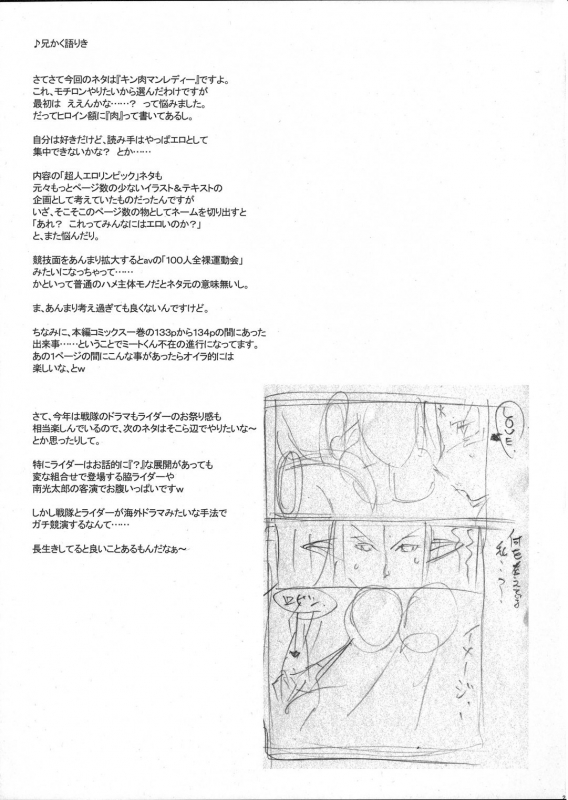 ♪兄かく語りき
さてさて今回のネタは『キン肉マンレディー』ですよ。
これ、モチロンやりたいから選んだわけですが
最初は ええんかな……? って悩みました。
だってヒロイン額に『肉』って書いてあるし。
自分は好きだけど、読み手はやっぱエロとして
集中できないかな? とか……
内容の「超人エロリンピック」ネタも
元々もっとページ数の少ないイラスト&テキストの
企画として考えていたものだったんですが
いざ、そこそこのページ数の物としてネームを切り出すと
「あれ? これってみんなにはエロいのか?」
と、また悩んだり。
競技面をあんまり拡大するとavの「100人全裸運動会」
みたいになっちゃって……
かといって普通のハメ主体モノだとネタ元の意味無いし。
ま、あんまり考え過ぎても良くないんですけど。
ちなみに、本編コミックス一巻の133pから134pの間にあった
出来事……ということでミートくん不在の進行になってます。
あの1ページの間にこんな事があったらオイラ的には
楽しいな、とw
さて、今年は戦隊のドラマもライダーのお祭り感も
相当楽しんでいるので、次のネタはそこら辺でやりたいな~
とか思ったりして。
特にライダーはお話的に『?』な展開があっても
変な組合せで登場する脇ライダーや
南光太郎の客演でお腹いっぱいですw
しかし戦隊とライダーが海外ドラマみたいな手法で
ガチ競演するなんて……
長生きしてると良いことあるもんだなぁ~
イメージ